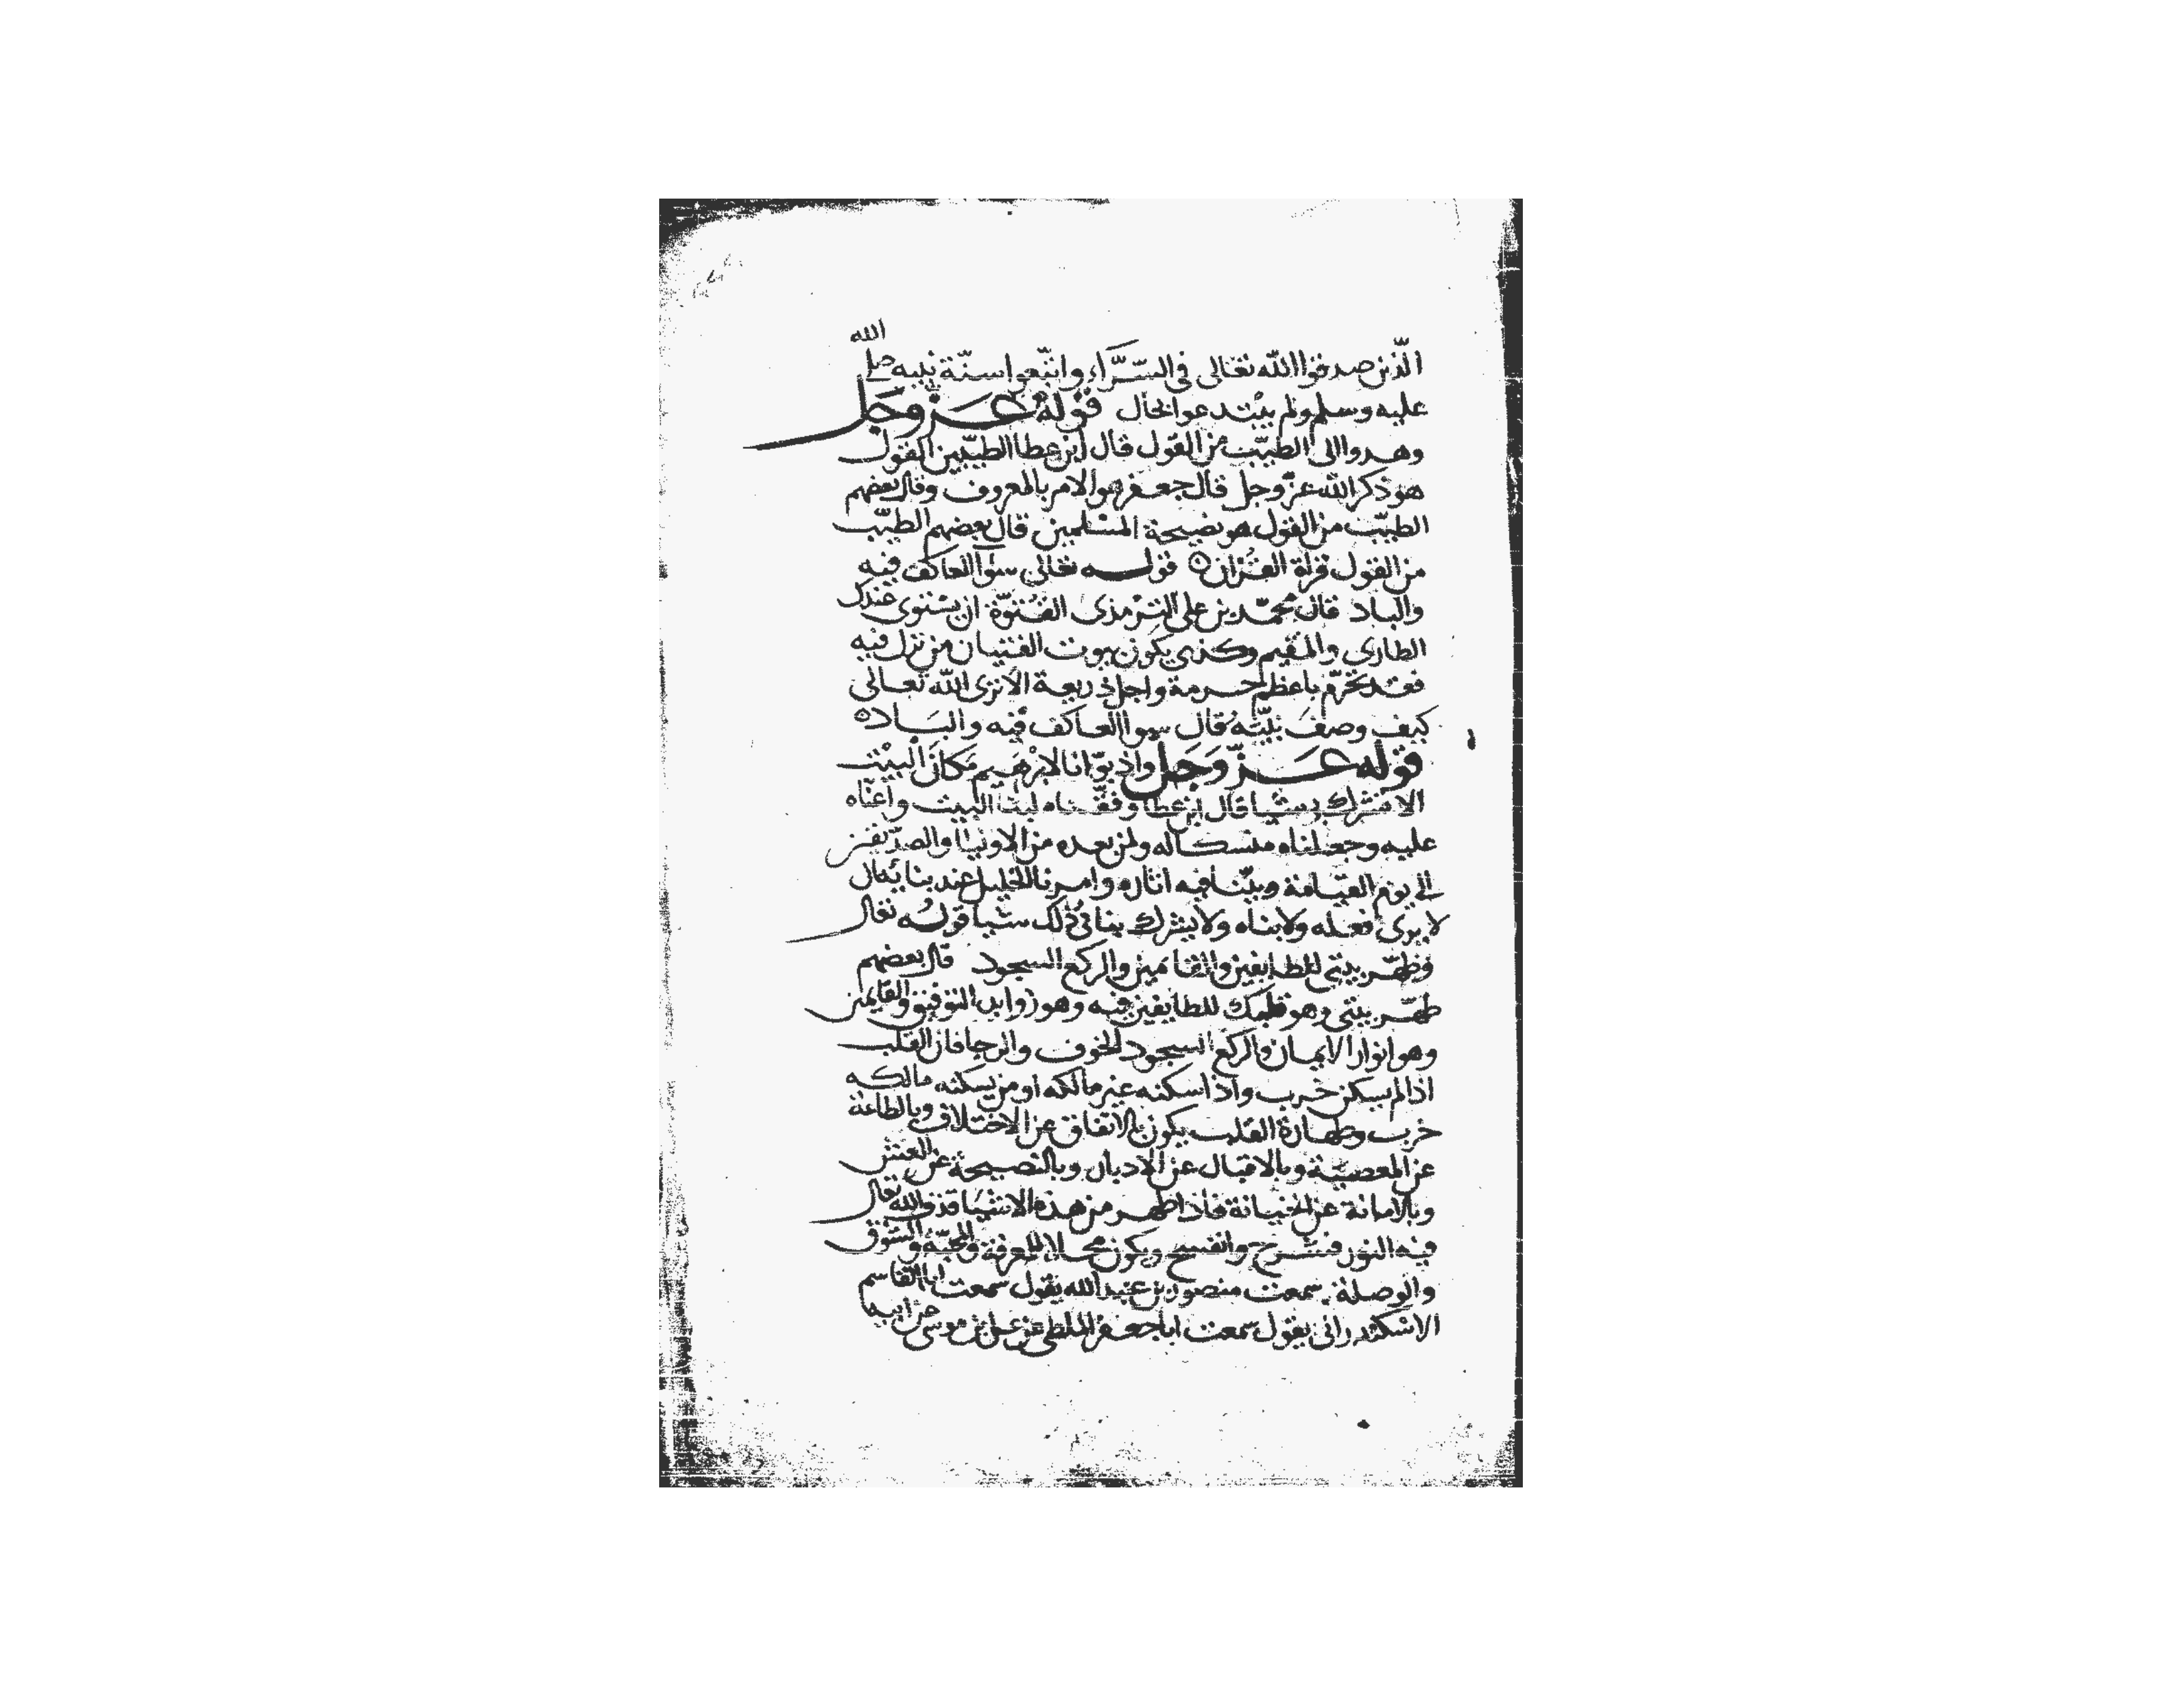 الّذين صدقوا الله تعالى في السّرّاء واتّبعوا سنّة نبيه صلى الله
عليه وسلم ولم يبتدعوا بحال قوله عز وجل
وهدوا الى الطيّب من القول قال ابن عطا الطيّب من القول
هو ذكر الله عزّ وجل قال جعفر هو الامر بالمعروف وقال بعضهم
الطيّب من القول هو نصيحة المسلمين قال بعضهم الطيّب
من القول قراة القران ه قوله تعالى سوآ العاكف فيه
والباد قال محمّد بن علي الترمذى الفتوّة ان يستوى عندك
الطارى والمقيم وكذى يكون بيوت الفتيان من نزل فيه
فقد تحرّم باعظم حرمة واجل ذريعة الا ترى الله تعالى
كيف وصف بيته قال سوا العاكف فيه والباد ه
قوله عزّ وجل واذ بوّانا لابرهيم مكان البيت
الا تشرك بى شيا قال ابن عطا وفقناه لبنا البيت واعناه
عليه وجعلناه منسكا له ولمن بعده من الاوليا والصدّيقين
الى يوم القيامة وبيّنا فيه اثاره وامرنا الخليل عند بنايه ان
لا يرى فعله ولا بناه ولا يشرك بنا في ذلك شيا قوله تعالى
وطهّر بيتي للطايفين والقايمين والركع السجود قال بعضهم
طهّر بيتي وهو قلبك للطايفين فيه وهو زوايد التوفيق والقايمين
وهو انوار الايمان والركع السجود الخوف والرجا فان القلب
اذا لم يسكن خرب واذا سكنه غير مالكه او من يسكنه مالكه
خرب وطهارة القلب يكون بالاتفاق عن الاختلاف وبالطاعة
عن المعصية وبالاقبال عن الادبار وبالنصيحة عن الغش
وبالامانة عن الخيانة فاذا طهر من هذه الاشيا قذف الله تعالى
فيه النور فينشرح وانفسح ويكون محلا للمعرفة والمحبّة والشوق
والوصلة سمعت منصور بن عبد الله يقول سمعت ابا القاسم
الاسكندرانى يقول سمعت ابا جعفر الملطي عن علي بن موسى عن ابيه